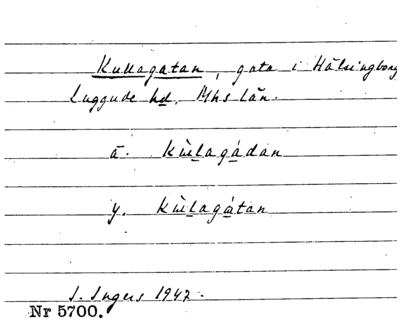 Kullagatan, gata i Hälsingborg
Luggude hd, Mhs län.
ä. Kùlagádan
y. Kùlagátan
I. Ingers 1947.
Nr 5700.